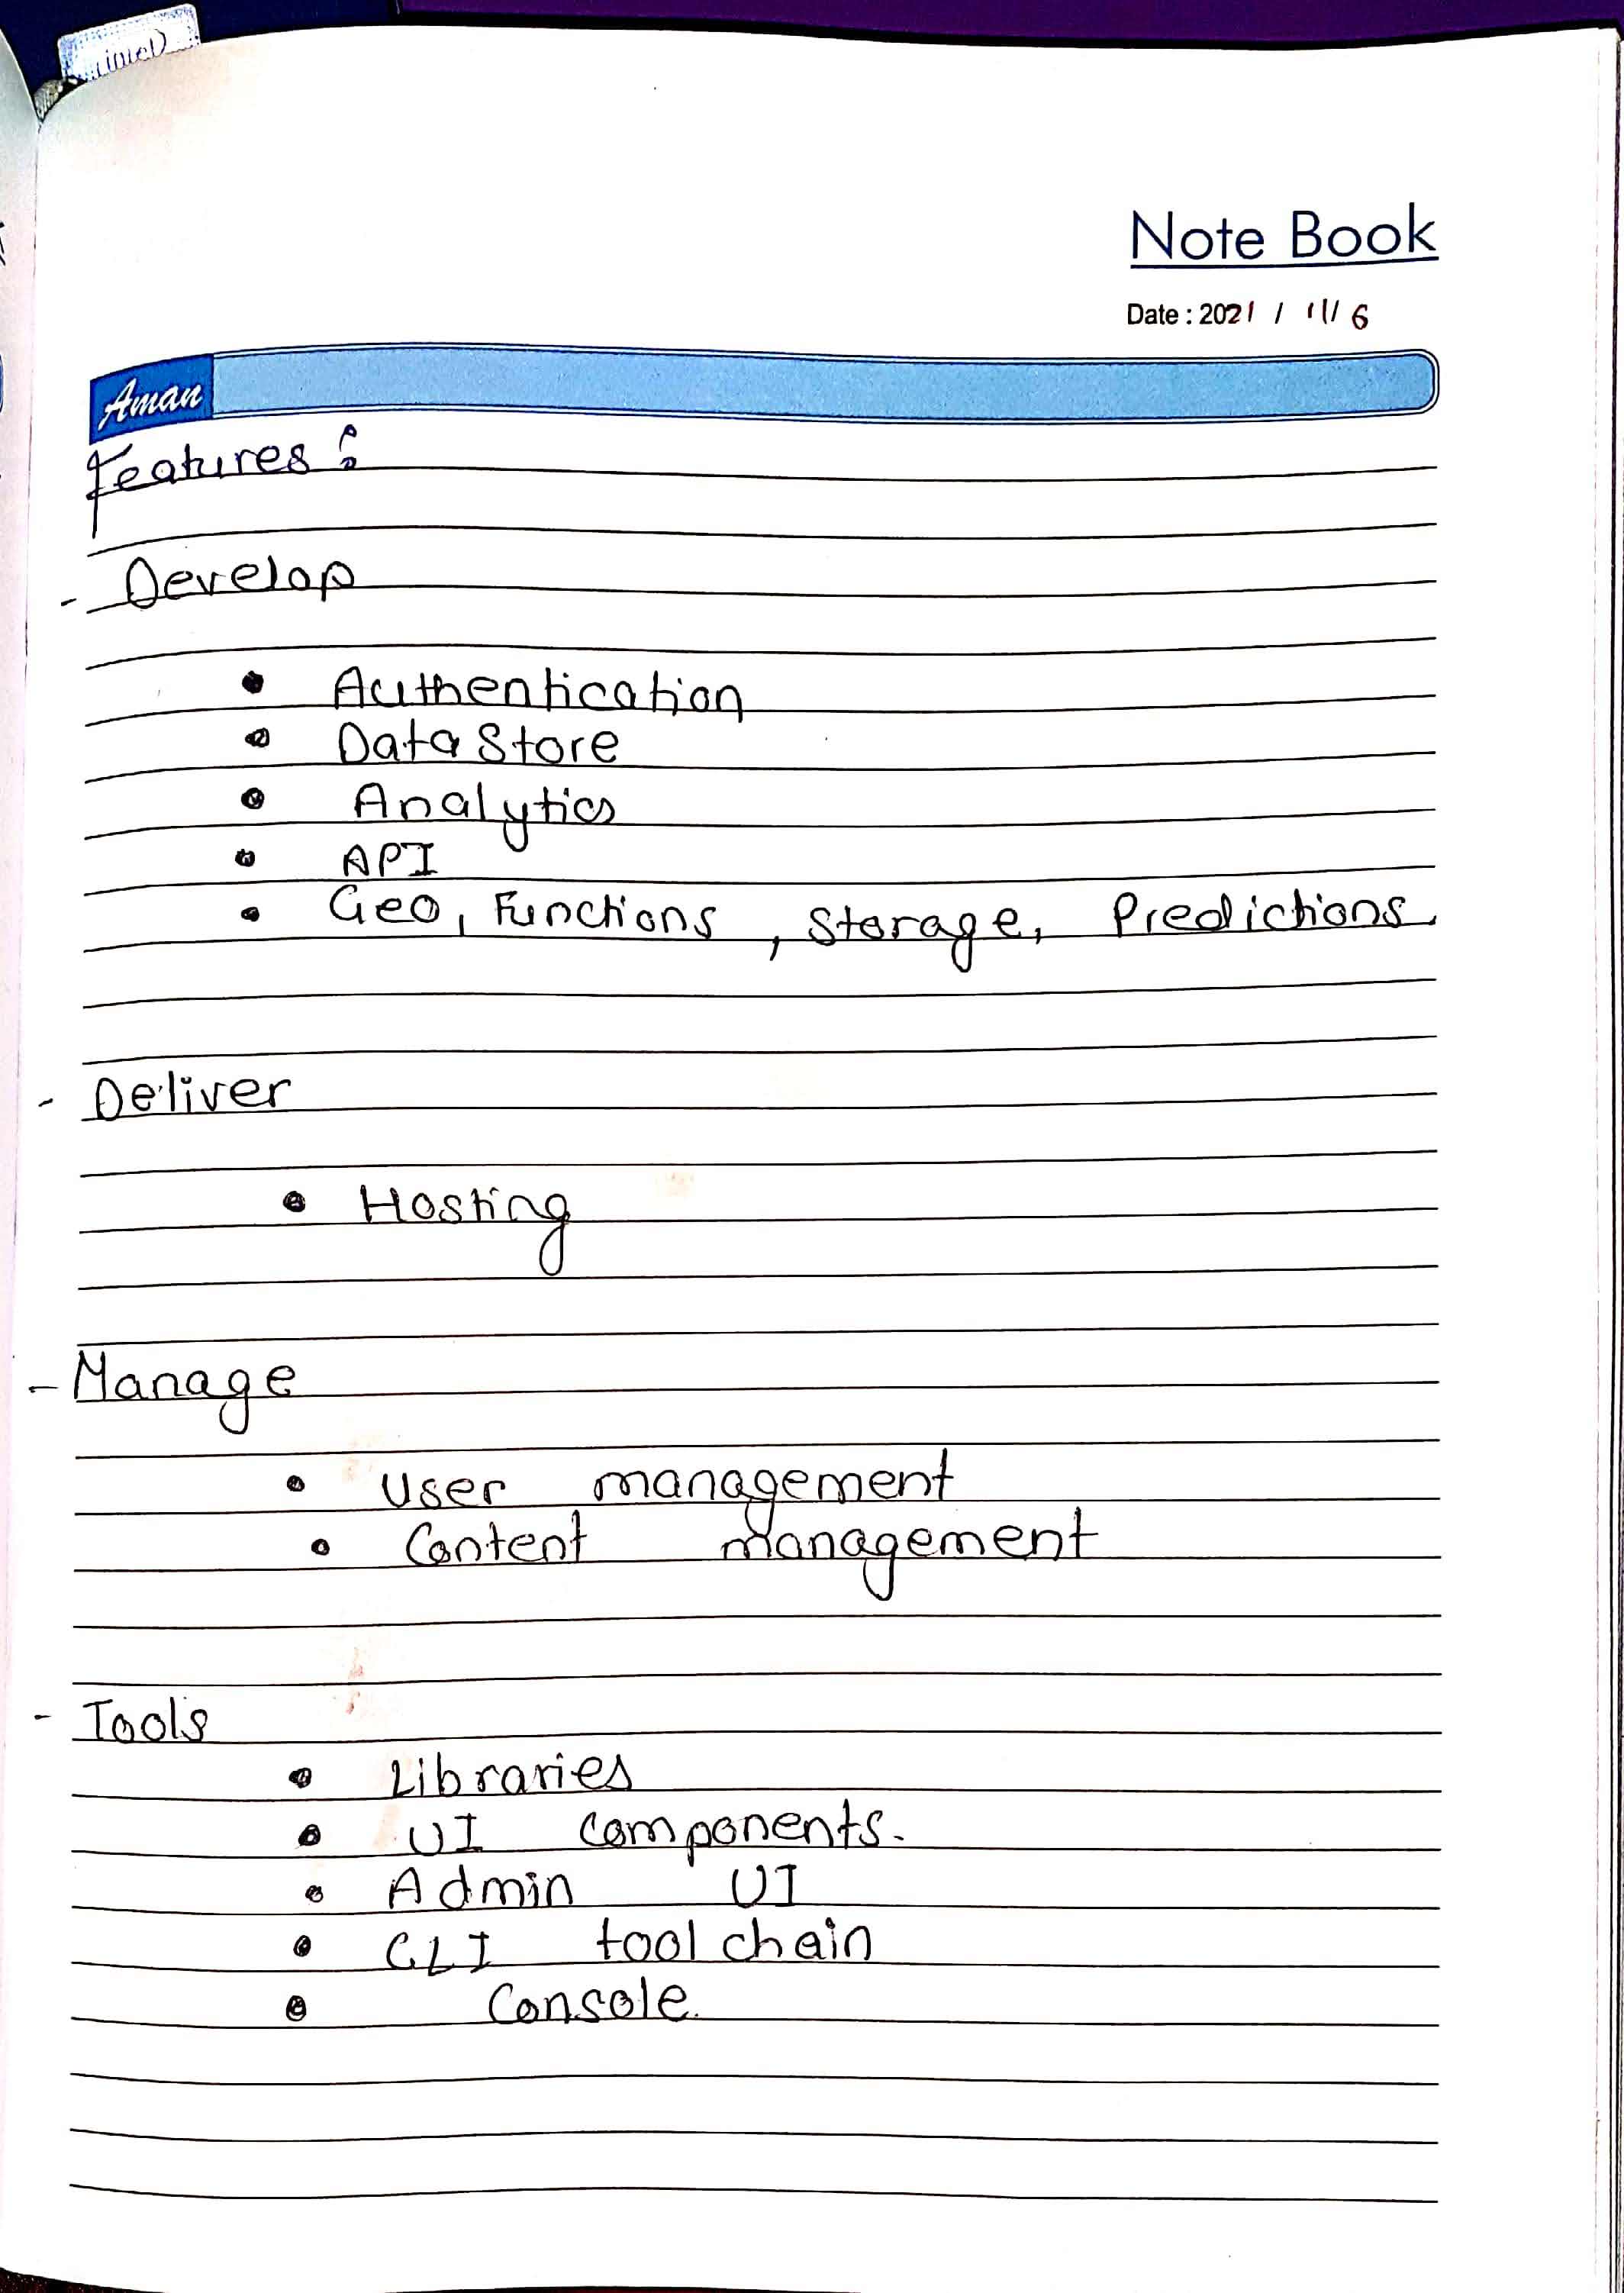 Note Book
Date : 2021 / 11/ 6
Aman
Features :
- Develop
• Authentication
• DataStore
• Analytics
• API
• Geo, Functions , Storage, Predictions
- Deliver
• Hosting
- Manage
• User management
• Content management
- Tools
• Libraries
• UI components.
• Admin UI
• CLI tool chain
• Console.